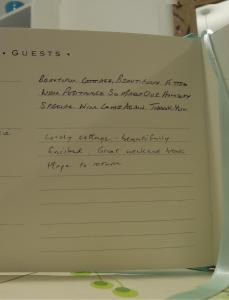 • GUESTS •
BEAUTIFUL COTTAGE, BEAUTIFULLY FITTED
WITH POSTCARDS SO MADE OUR HOLIDAY
SPECIAL WILL COME AGAIN THANK YOU
Lovely cottage - beautifully
finished. Great weekend break
Hope to return